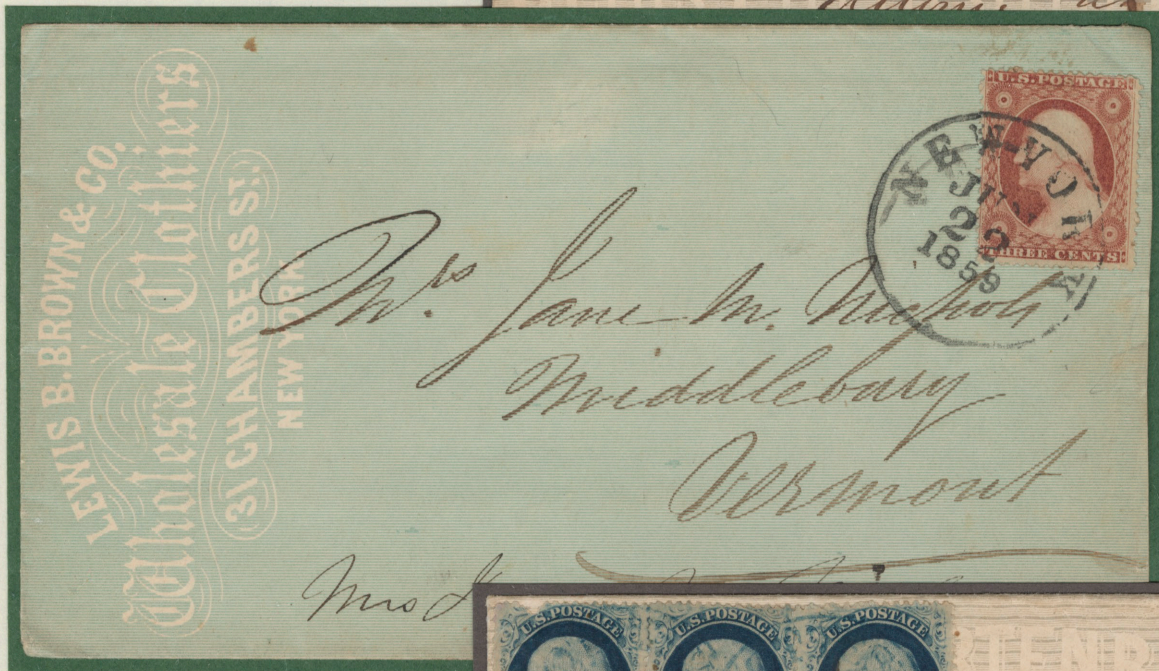 LEWIS B. BROWN & CO.
Wholesale Clothiers
31 CHAMBERS ST.
NEW YORK
U.S. POSTAGE
THREE CENTS
NEW-YORK
JUN
22
1859
Mrs Jane M. Nichols
Middlebury
Vermont
Mrs J
U.S. POSTAGE
U.S. POSTAGE
U.S. POSTAGE